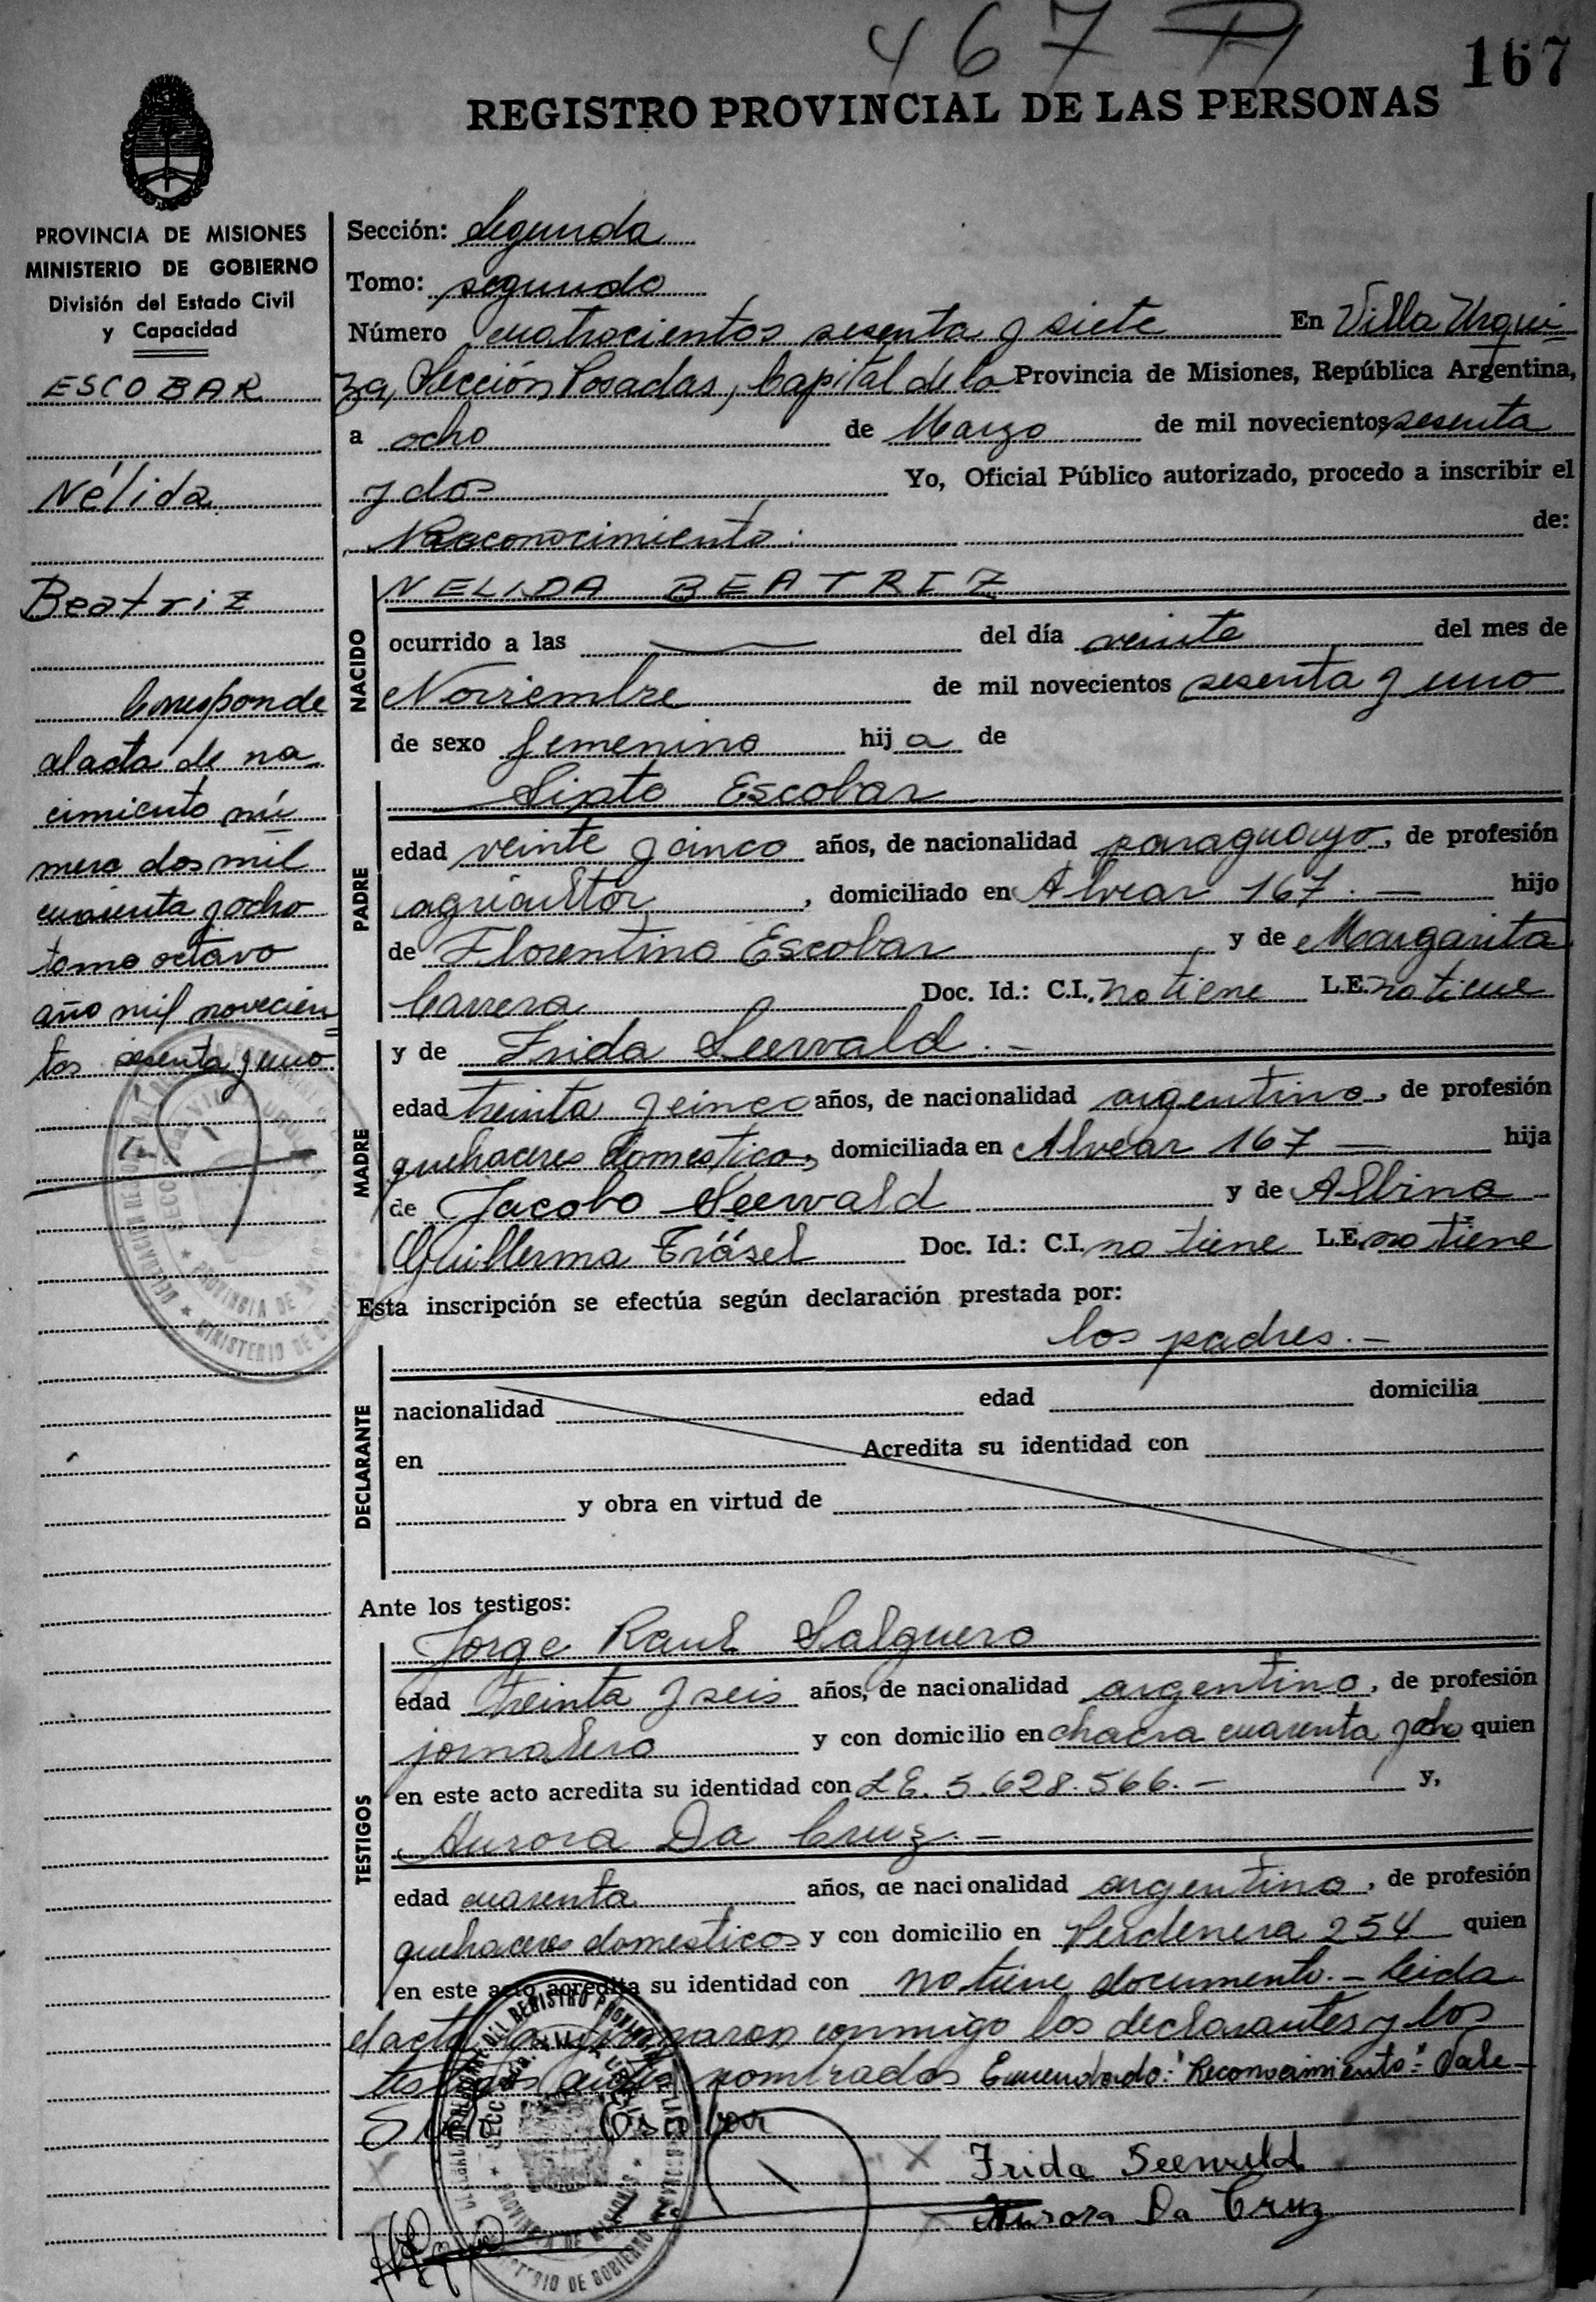 467 P
167
REGISTRO PROVINCIAL DE LAS PERSONAS
PROVINCIA DE MISIONES
MINISTERIO DE GOBIERNO
División del Estado Civil
y Capacidad
ESCOBAR
Nélida
Beatriz
Corresponde
al acta de na
cimiento nú
mero dos mil
cuarenta y ocho
tomo octavo
año mil novecien
tos sesenta y uno
Sección: Segunda
Tomo: segundo
Número cuatrocientos sesenta y siete En Villa Urqui
za, Sección Posadas, Capital de la Provincia de Misiones, República Argentina,
a ocho de Marzo de mil novecientos sesenta
y dos Yo, Oficial Público autorizado, procedo a inscribir el
Reconocimiento. de:
NACIDO
NELIDA BEATRIZ
ocurrido a las del día veinte del mes de
Noviembre de mil novecientos sesenta y uno
de sexo femenino hija de
PADRE
Sixto Escobar
edad veinte y cinco años, de nacionalidad paraguayo, de profesión
agricultor, domiciliado en Alvear 167.— hijo
de Florentino Escobar y de Margarita
Carrera Doc. Id.: C.I. no tiene L.E. no tiene
MADRE
y de Frida Seewald.—
edad treinta y cinco años, de nacionalidad argentina, de profesión
quehaceres domesticos, domiciliada en Alvear 167 — hija
de Jacobo Seewald y de Albina
Guillerma Träsel Doc. Id.: C.I. no tiene L.E. no tiene
Esta inscripción se efectúa según declaración prestada por:
los padres.—
DECLARANTE
nacionalidad edad domicilia
en Acredita su identidad con
y obra en virtud de
Ante los testigos:
TESTIGOS
Jorge Raul Salguero
edad treinta y seis años, de nacionalidad argentino, de profesión
jornalero y con domicilio en chacra cuarenta y ocho quien
en este acto acredita su identidad con L E. 5.628.566.— y,
Aurora Da Cruz.—
edad cuarenta años, de nacionalidad argentina, de profesión
quehaceres domesticos y con domicilio en Perdenera 254 quien
en este acto acredita su identidad con no tiene documento.— Leida
el acta la firmaron conmigo los declarantes y los
testigos antes nombrados Enmendado: "Reconocimiento": Vale—
Escobar
Frida Seewald
Aurora Da Cruz